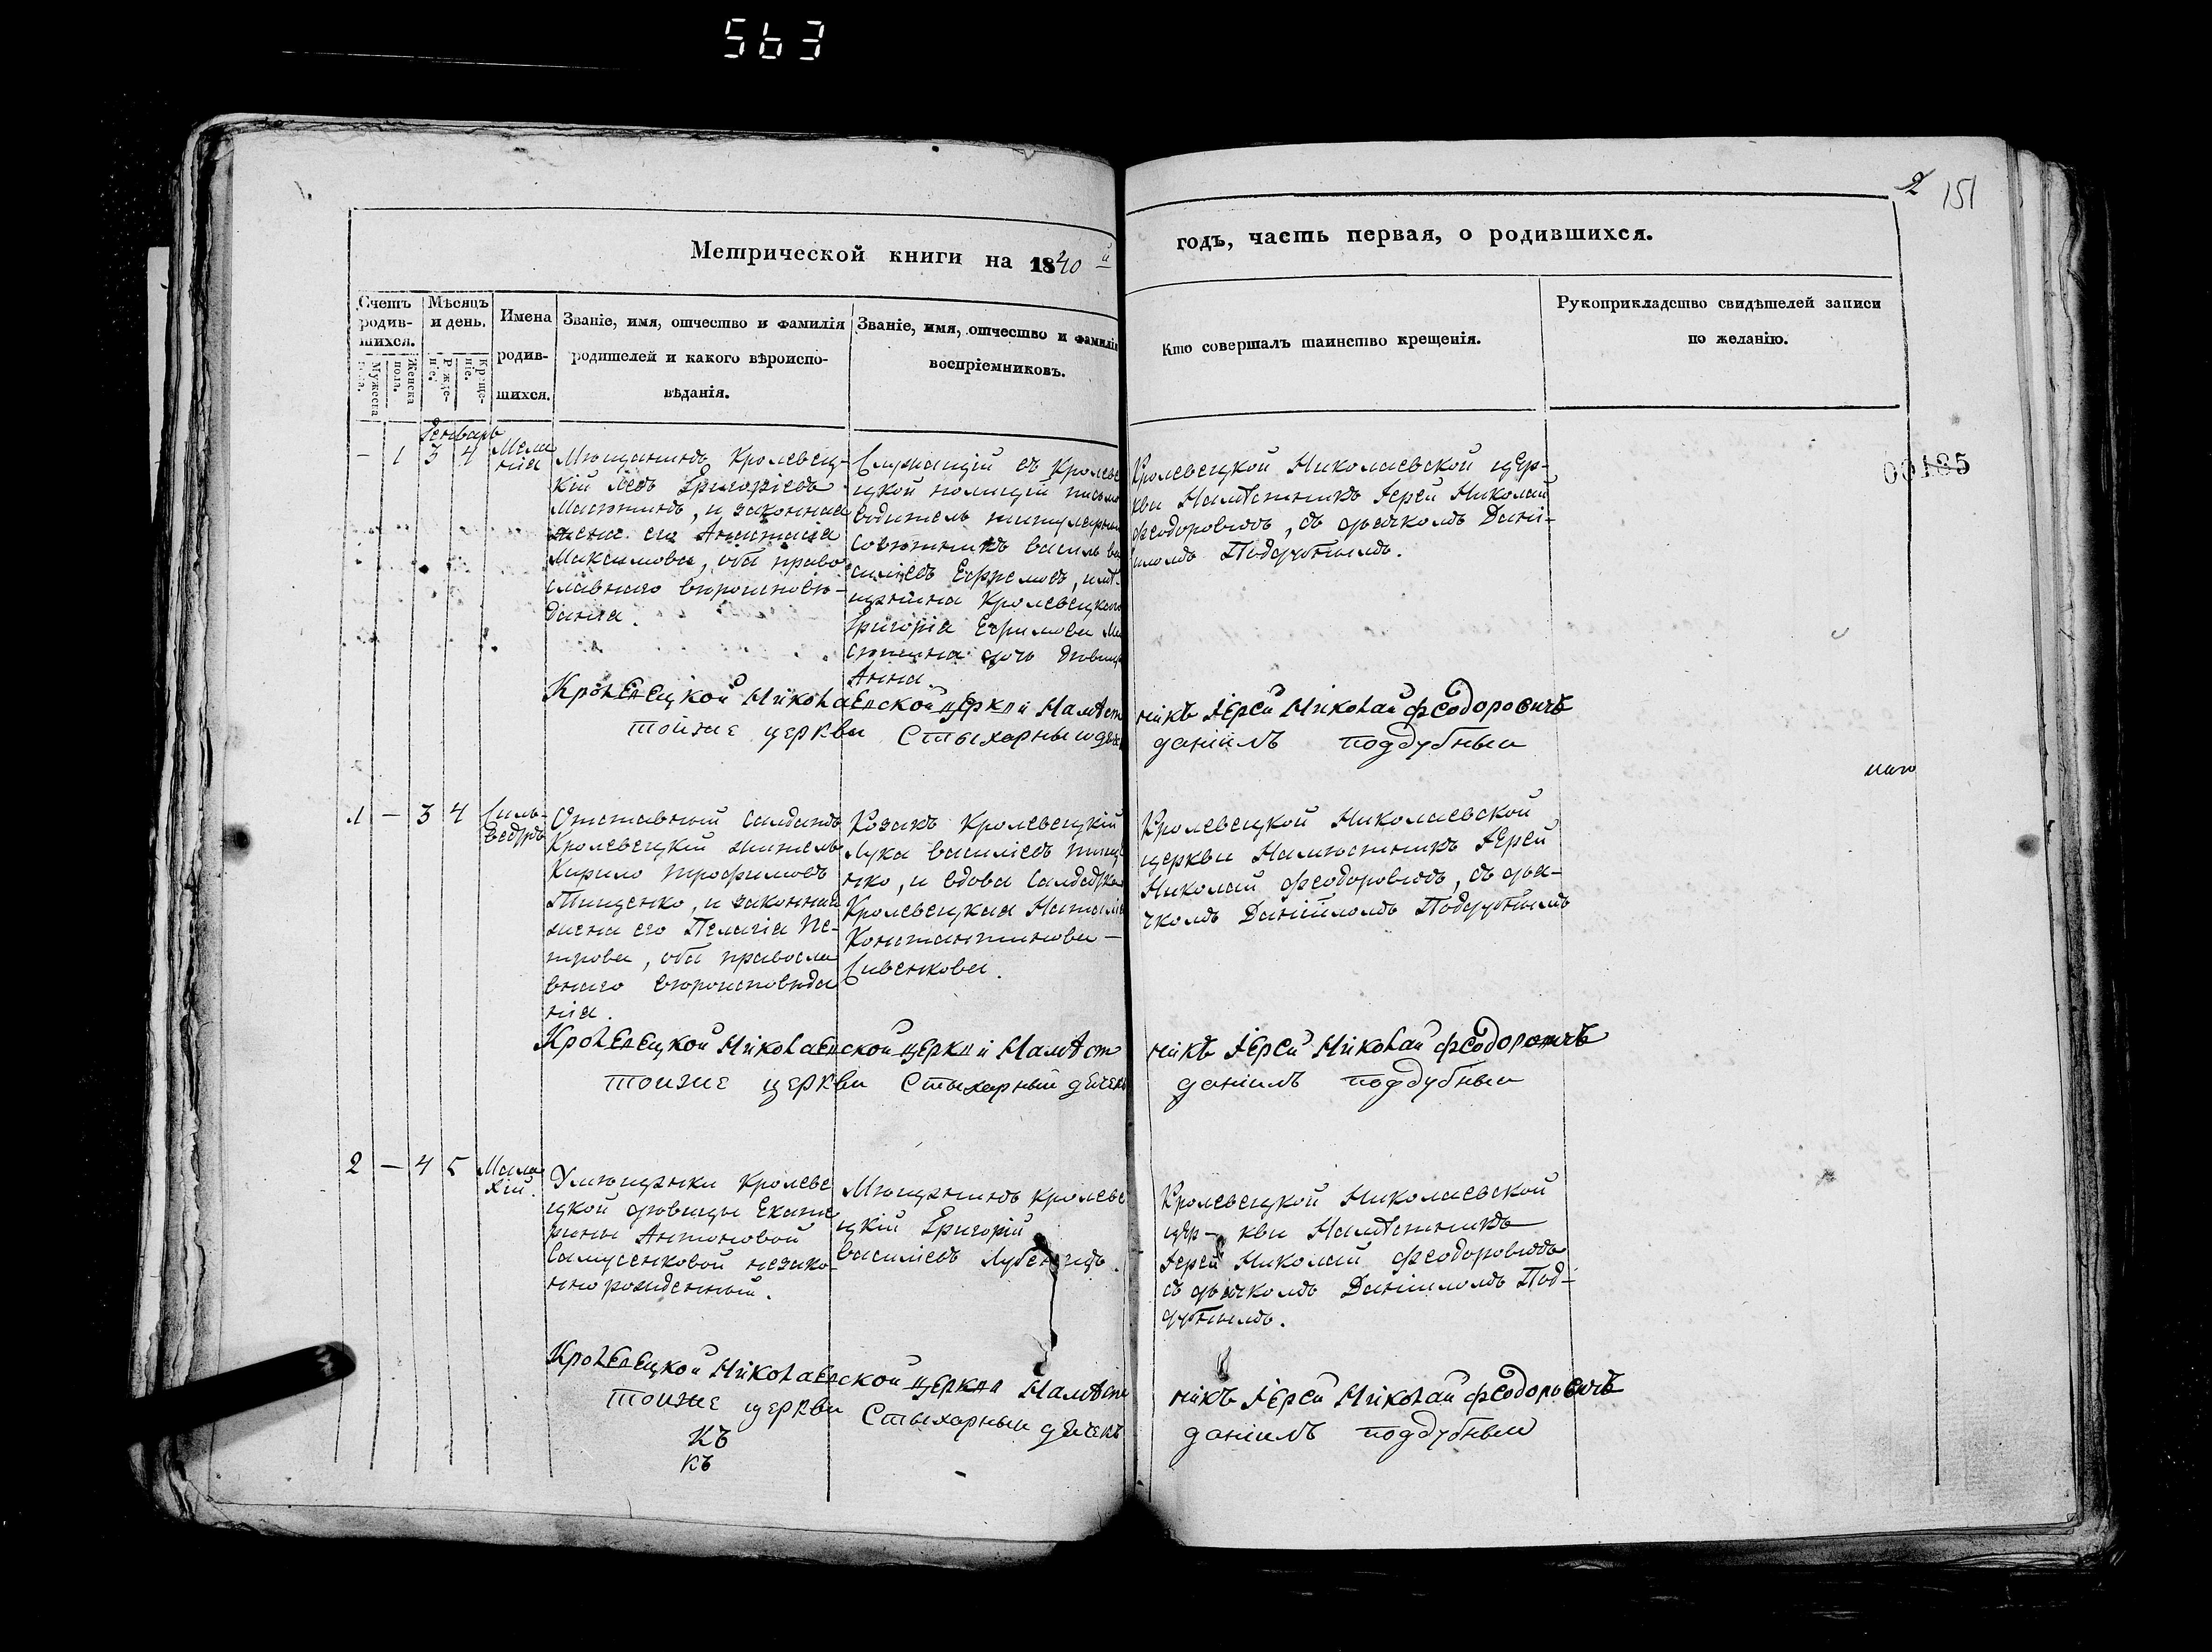 563
2 151
Метрической книги на 1840й
годъ, часть первая, о родившихся.
Счетъ родив-шихся.
Мѣсяцъ и день.
Имена родив-шихся.
Званіе, имя, отчество и фамилія
родителей и какого вѣроиспо-
вѣданія.
Званіе, имя, отчество и фамилія
воспріемниковъ.
Кто совершалъ таинство крещенія.
Рукоприкладство свидѣтелей записи
по желанію.
Мужеска пола.
Женска полъ.
Рожде-ніе.
Креще-ніе.
Генварь
00185
- 1 3 4
Мела
нія
Мѣщанинъ Кролевец-
кій Левъ Григоріевъ
и законная
жена его Анастасіа
Максимова, оба право
славнаго вѣроисповѣ-
данія.
Служащій въ Кролеве
цкой полиціи письмо
водитель титулярный
совѣтникъ Василь Ва
силіевъ Ефремовъ, и мѣ-
щанина Кролевецкаго
Григорія Ефимова Ма
сютина дочь дѣвица
Анна.
Кролевецкой Николаевской цер-
кви Намѣстникъ Іерей Николай
Феодоровичъ, съ дьячкомъ Дані-
иломъ Поддубнымъ.
Кролевецкой Николаевской церкви Намѣст
никъ Іерей Николай Феодоровичъ
тойже церкви Стыхарный дьяч
даніилъ поддубный
1 - 3 4
Силь-
вестръ
Отставный Салдатъ
Кролевецкій житель
Кирило Трофимовъ
Тищенко, и законная
жена его Пелагіа Пе-
трова, оба правосла
внаго вѣроисповѣда
нія.
Козакъ Кролевецкій
Лука Василіевъ Тище
нко, и вдова Салдатка
Кролевецкая Наталіа
Константинова -
Сивенкова.
Кролевецкой Николаевской
церкви Намѣстникъ Іерей
Николай Феодоровичъ, съ дья-
чкомъ Даніиломъ Поддубнымъ
Кролевецкой Николаевской церкви Намѣст
никъ Іерей Николай Феодоровичъ
тойже церкви Стыхарный дьячекъ
даніилъ поддубный
2 - 4 5
Мала
хій.
У мѣщанки Кролеве
цкой дѣвицы Екате
рины Антоновой
Самусенковой незако-
нно рожденный.
Мѣщанинъ Кролеве
цкій Григорій
Василіевъ Лубенецъ.
Кролевецкой Николаевской
цер- кви Намѣстникъ
Іерей Николай Феодоровичъ
съ дьячкомъ Даніиломъ Под-
дубнымъ.
Кролевецкой Николаевской церкви Намѣст
никъ Іерей Николай Феодоровичъ
тойже церкви Стыхарный дьячекъ
даніилъ поддубный
КЪ
КЪ